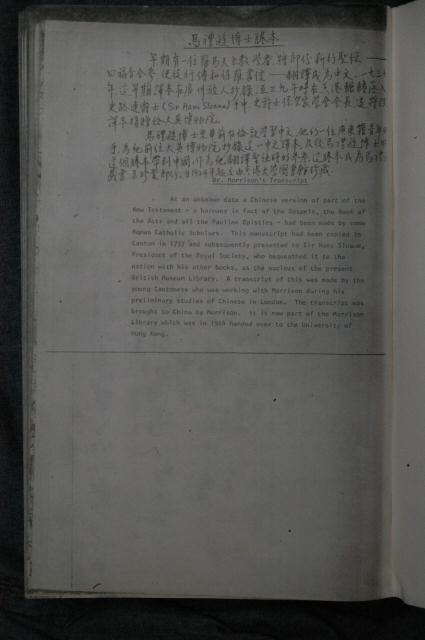 馬禮遜博士謄本
早期有一位羅馬天主教學者,將部份新約聖經——
四福音合參,使徒行傳和保羅書信——翻譯成為中文,一七三七
年,這早期譯本在廣州被人抄錄,
史路連爵士(Sir Hans Sloane)手中,史爵士係皇家學會會長,
譯本捐贈給大英博物院。
馬禮遜博士來華前在倫敦學習中文,他的一位廣東籍青年
為他前往大英博物院,抄錄這一中文譯本,其後馬禮遜博士
這個謄本帶到中國,作為他翻譯聖經時的參考,這謄本成為馬禮
Dr. Morrison's Transcript
At an unknown date a Chinese version of part of the
New Testament - a harmony in fact of the Gospels, the Book of
the Acts and all the Pauline Epistles - had been made by some
Roman Catholic Scholars. This manuscript had been copied in
Canton in 1737 and subsequently presented to Sir Hans Sloane,
President of the Royal Society, who bequeathed it to the
nation with his other books, as the nucleus of the present
British Museum Library. A transcript of this was made by the
young Cantonese who was working with Morrison during his
preliminary studies of Chinese in London. The transcript was
brought to China by Morrison. It is now part of the Morrison
Library which was in 1914 handed over to the University of
Hong Kong.